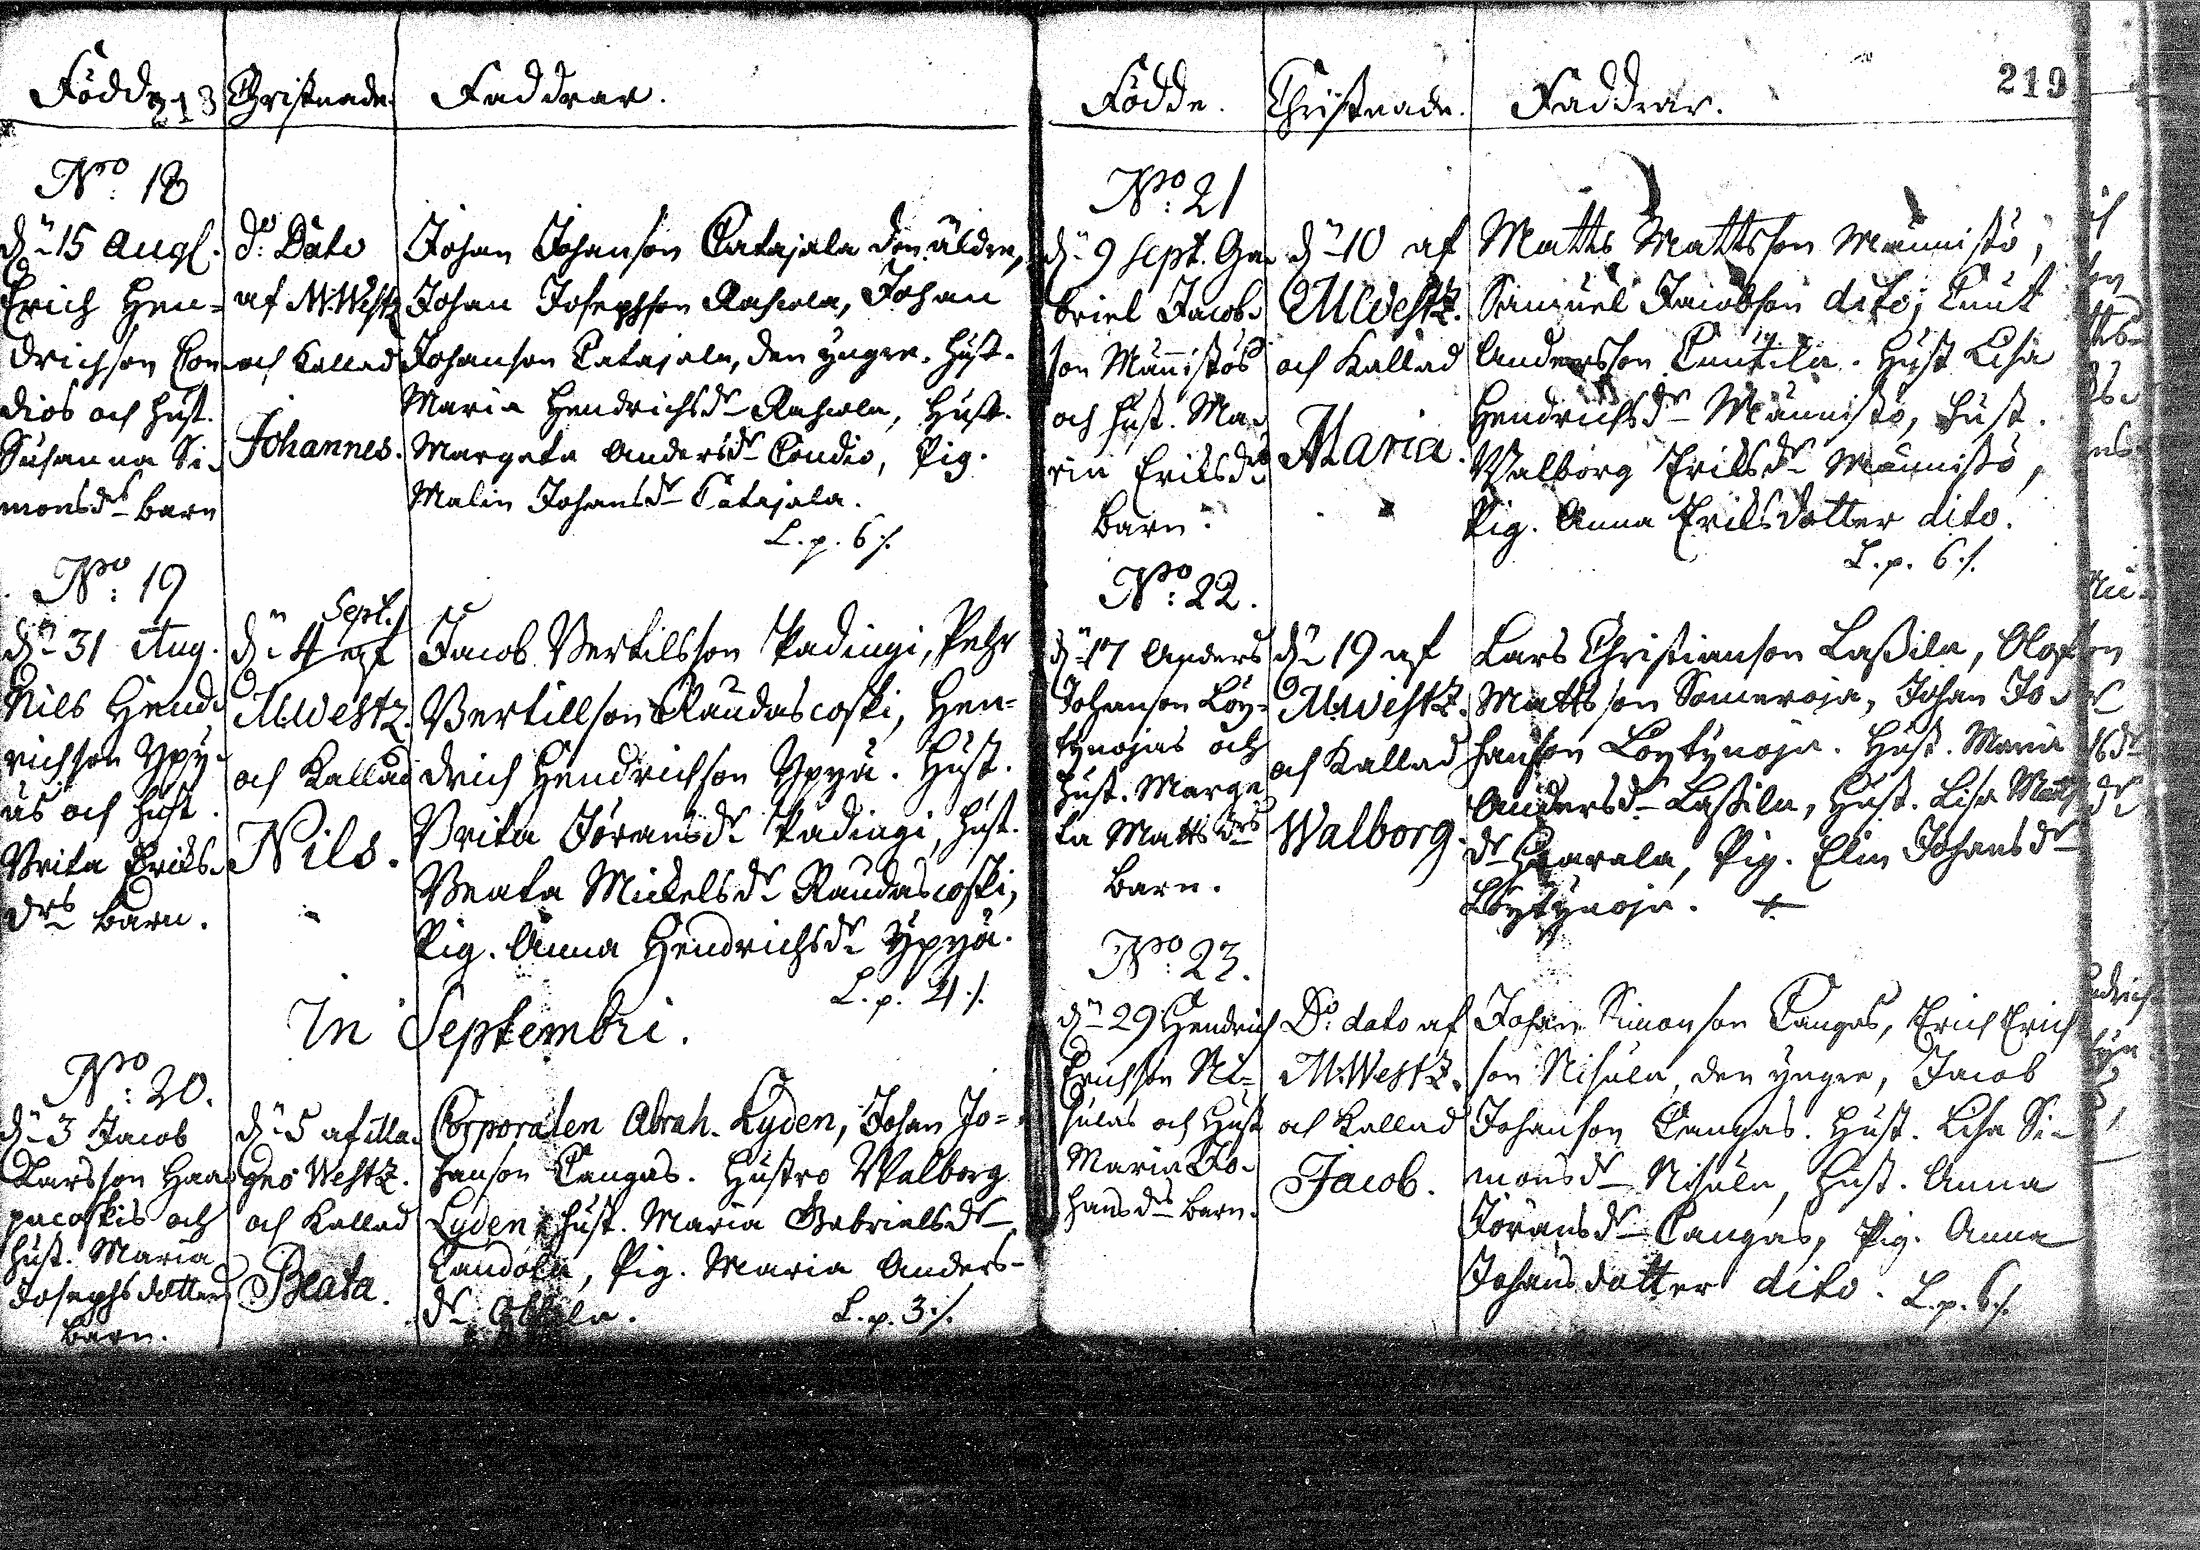 Födde
213
Christnade.
Faddrar.
No: 18
dn 15 Augs.
Erich Hen=
drichson Con-
dios och Hust.
Susanna Si-
monsdrs barn
do: Dato
af M:Westz
och Kallad
Johannes.
Johan Johanson Catajala den äldre,
Johan Josephson Rahcola, Johan
Johanson Catajala, den yngre. Hust.
Maria Hendrichsdr Rahcola, Hust.
Margeta Andersdr Condio, Pig.
Malin Johansdr Catajala.
L. p. 6 ./.
No: 19
dn 31 Aug.
Nils Hend-
richson Ypy-
äs och Hust.
Brita Eriks-
drs barn.
Sept.
dn 4 af
M:Westz.
och Kallad
Nils.
Jacob Bertilsson Padingi, Pehr
Bertillson Raudascoski, Hen=
drich Hendrichson Ypyä. Hust.
Brita Jöransdr Padingi, Hust.
Beata Mickelsdr Raudascoski,
Pig. Anna Hendrichsdr Ypyä.
L. p. 21 ./.
In Septembri.
No: 20.
dn 3 Jacob
Larsson Haa
pacoskis och
Hust. Maria
Josephsdotters
barn.
dn 5 af illu.
Westz.
och Kallad
Beata.
Corporalen Abrah. Lyden, Johan Jo=
hanson Cangas. Hustro Walborg
Lyden, Hust. Maria Gabrielsdr
Candola, Pig. Maria Anders-
dr
L. p. 3 ./.
219
Födde.
Christnade.
Faddrar.
No: 21
dn 9 Sept. Ga-
briel Jacob-
son Männistös
och Hust. Ma-
ria Eriksdrs
barn.
dn 10 af
M:Westz.
och Kallad
Maria.
Matts Mattsson Männistö,
Samuel Jacobson dito, Cnut
Andersson Cuutila. Hust Lisa
Hendrichsdr Männistö, Hust.
Walborg Eriksdr Männistö,
Pig. Anna Eriksdotter dito.
L. p. 6 ./.
No: 22.
dn 17 Anders
Johanson Löy-
tynojas och
Hust. Marge
ta Mattsdrs
barn.
dn 19 af
M:Westz.
och Kallad
Walborg.
Lars Christianson Lassila, Olof
Mattsson Someroja, Johan Jo-
hanson Löytynoja. Hust. Maria
Andersdr Lassila, Hust. Lisa Matts
dr Haarala, Pig. Elin Johansdr
Löytynoja.
No: 23.
dn 29 Hendrich
Erichson Ni=
sulas och Hust
Maria Jo-
hansdrs barn.
Do: dato af
M:Westz.
och Kallad
Jacob.
Johan Simonson Cangas, Erich Erich
son Nisula, den yngre, Jacob
Johanson Cangas. Hust. Lisa Si-
monsdr Nisula, Hust. Anna
Jöransdr Cangas, Pig. Anna
Johansdotter dito. L. p. 6 ./.